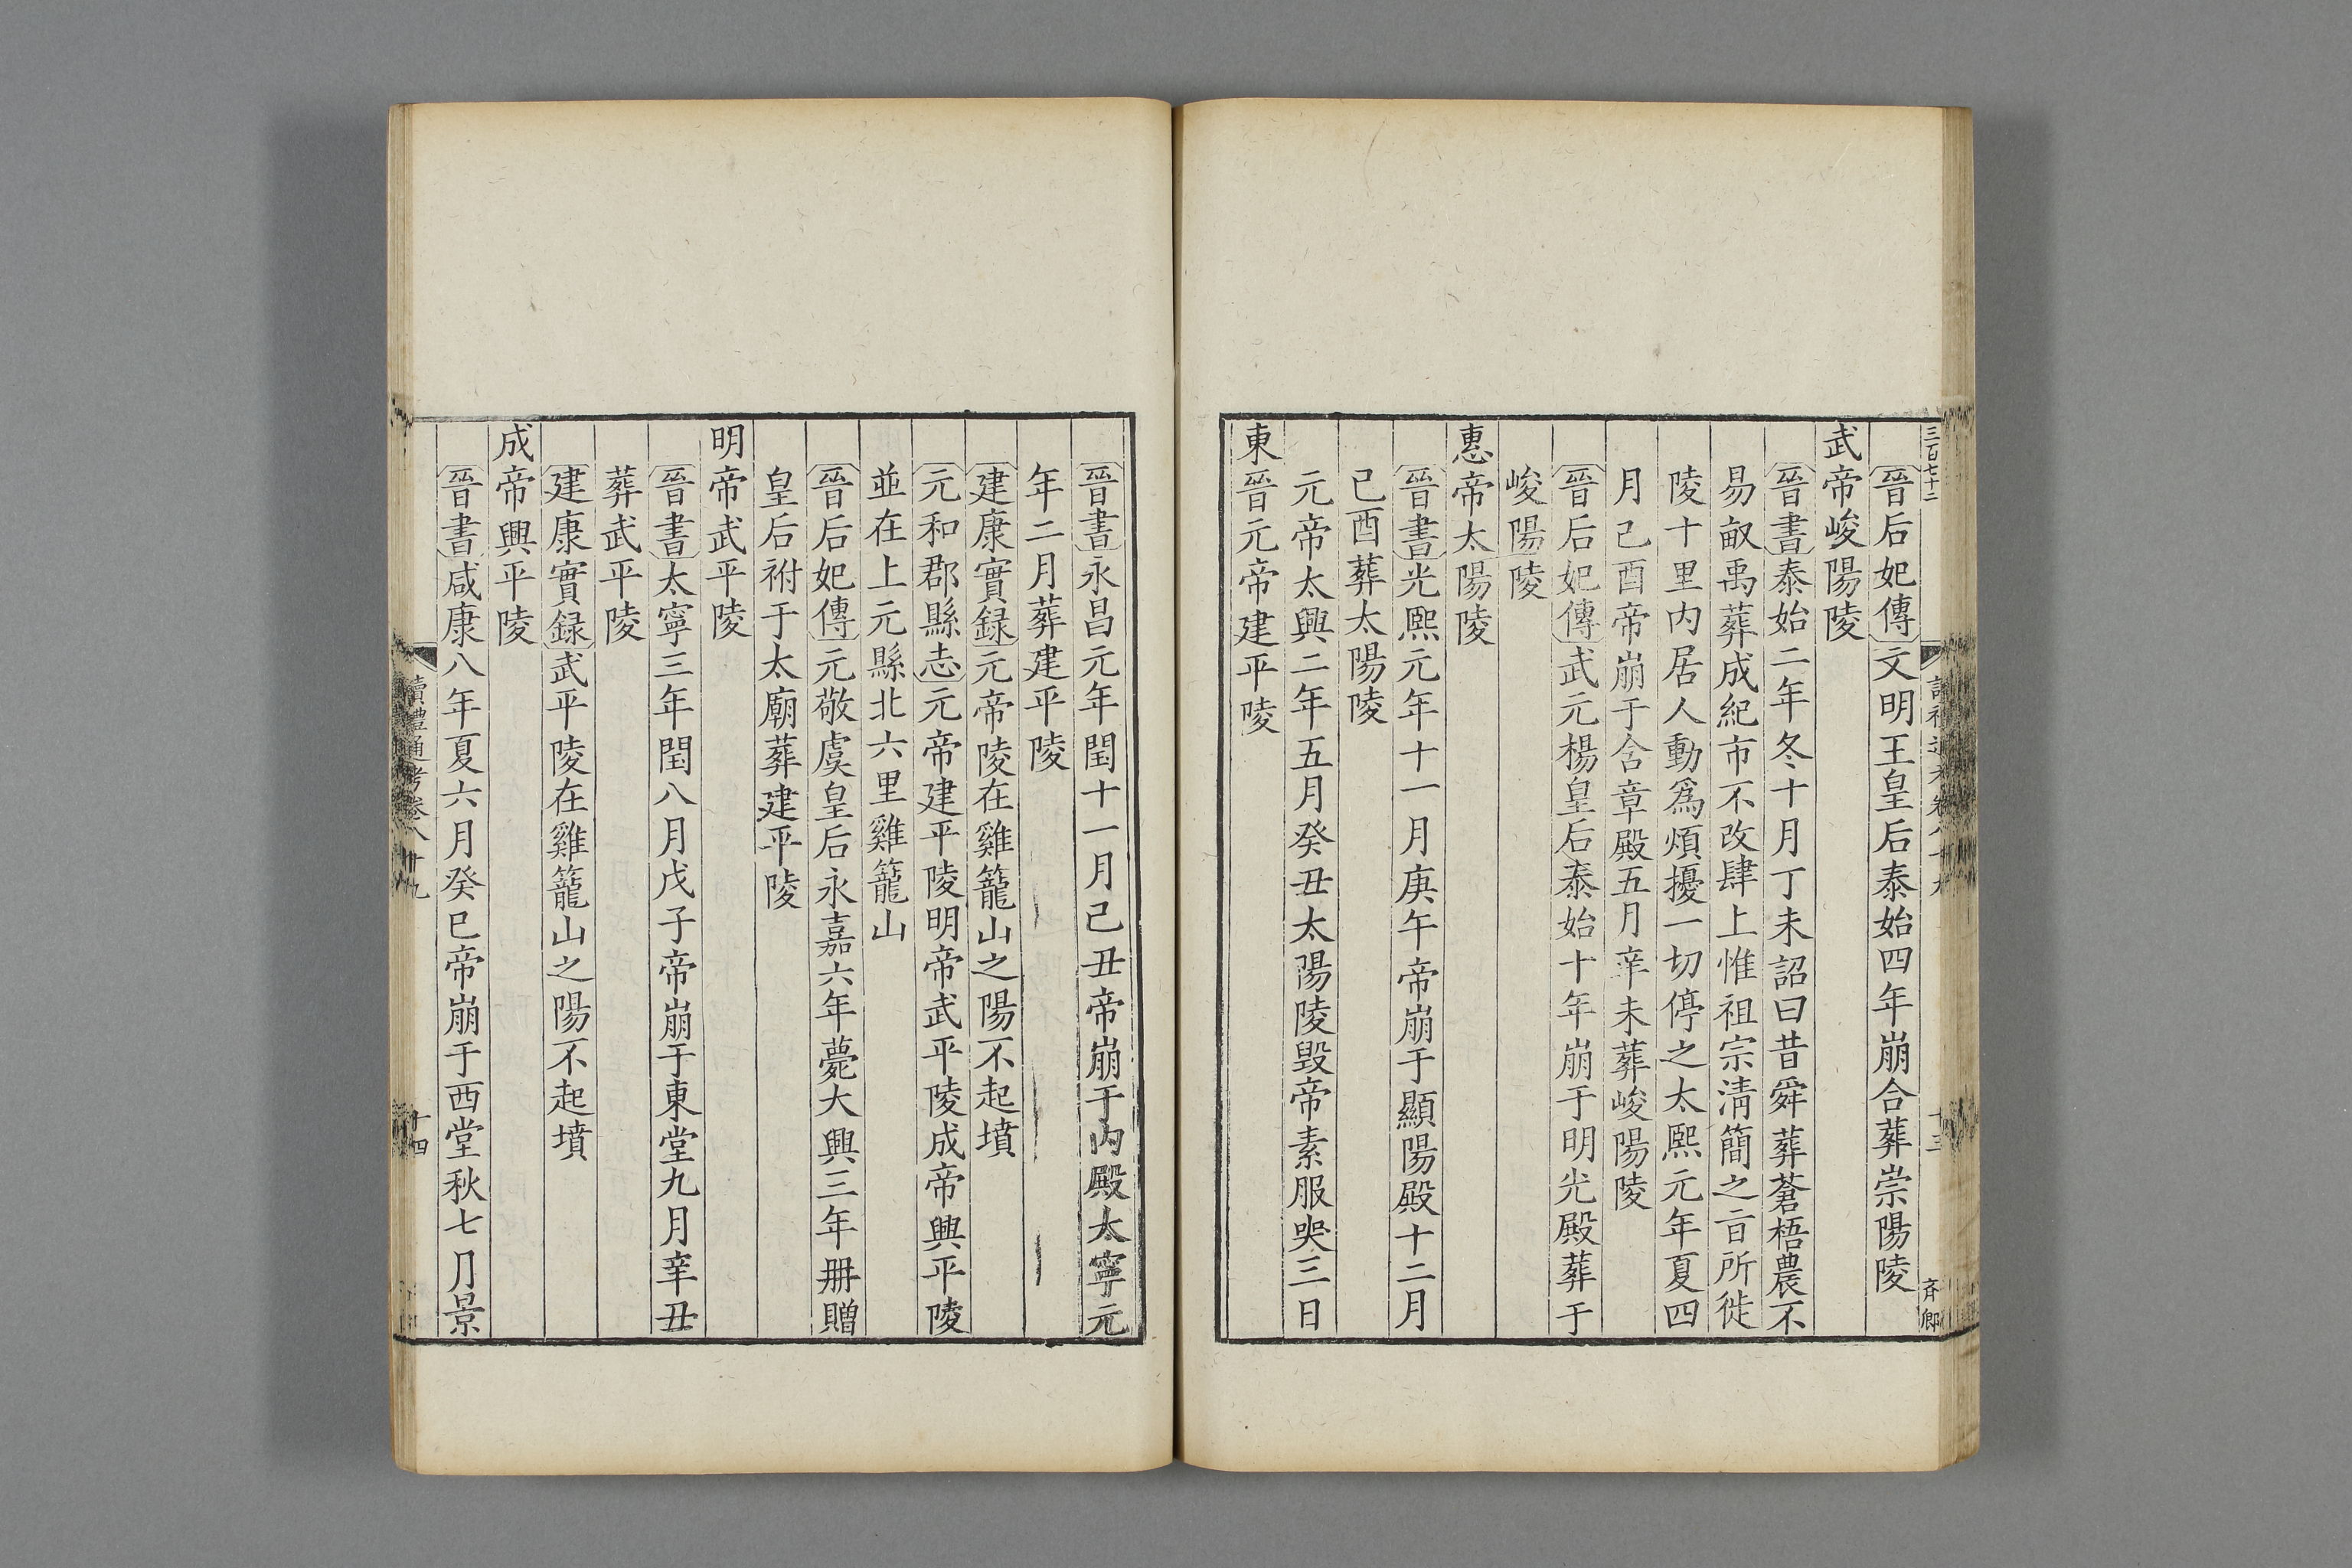 三百七十二
晉后妃傳文明王皇后泰始四年崩合葬崇陽陵
武帝峻陽陵
晉書泰始二年冬十月丁未詔曰昔舜葬蒼梧農不
易畝禹葬成紀市不改肆上惟祖宗清簡之㫖所徙
陵十里内居人動爲煩擾一切停之太熙元年夏四
月己酉帝崩于含章殿五月辛未葬峻陽陵
晉后妃傳武元楊皇后泰始十年崩于明光殿葬于
峻陽陵
惠帝太陽陵
晉書光熙元年十一月庚午帝崩于顯陽殿十二月
己酉葬太陽陵
元帝太興二年五月癸丑太陽陵毁帝素服哭三日
東晉元帝建平陵
晉書永昌元年閏十一月己丑帝崩于内殿太寧元
年二月葬建平陵
建康實録元帝陵在雞籠山之陽不起墳
元和郡縣志元帝建平陵明帝武平陵成帝興平陵
並在上元縣北六里雞籠山
晉后妃傳元敬虞皇后永嘉六年薨大興三年冊贈
皇后祔于太廟葬建平陵
明帝武平陵
晉書太寧三年閏八月戊子帝崩于東堂九月辛丑
葬武平陵
建康實録武平陵在雞籠山之陽不起墳
成帝興平陵
晉書咸康八年夏六月癸巳帝崩于西堂秋七月景
讀禮通考卷八十九
十四